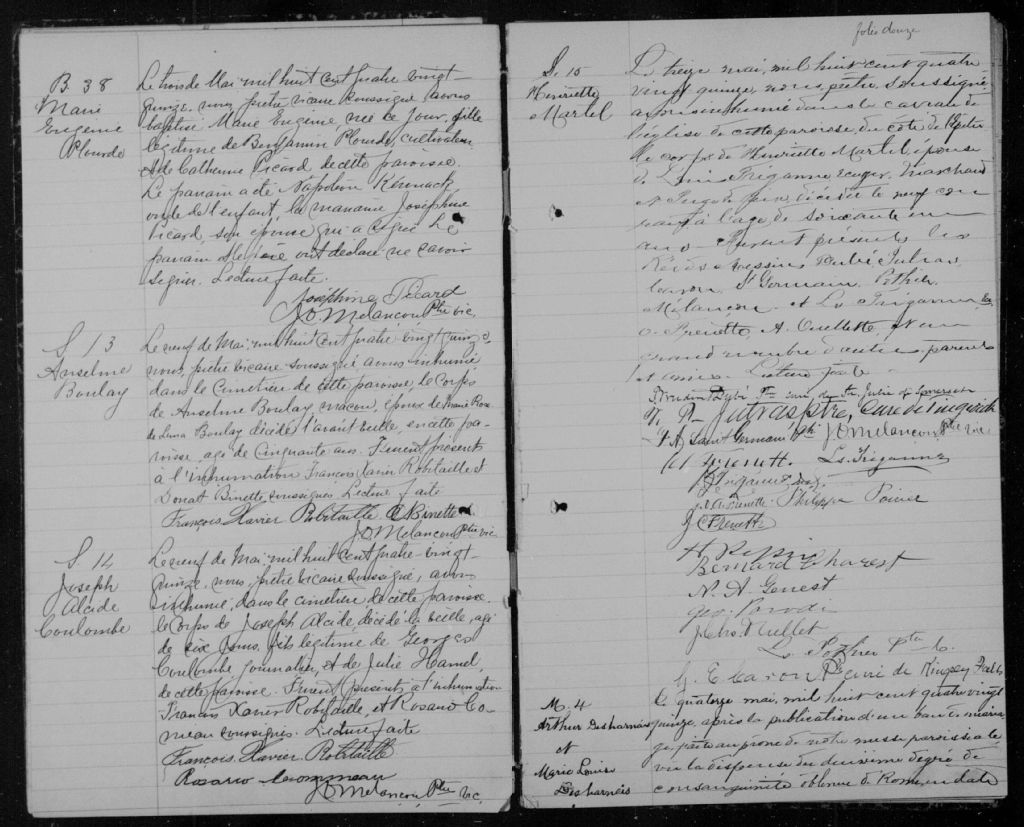 B. 38
Marie
Eugenie
Plourde
Le trois de Mai, mil huit cent quatre vingt-
quinze, nous, prêtre vicaire soussigné, avons
baptisé Marie Eugenie née ce jour, fille
legitime de Benjamin Plourde, cultivateur
& de Catherine Picard de cette paroisse.
Le parrain a été Napoléon
oncle de l'enfant, la marraine Joséphine
Picard, son épouse qui a signé. Le
parrain & le père ont déclaré ne savoir
signer. Lecture faite.
Joséphine Picard
J O Melançon Ptre vic.
S 13
Anselme
Boulay
Le neuf de Mai, mil huit cent quatre vingt quinze,
nous, prêtre vicaire soussigné avons inhumé
dans le cimetière de cette paroisse, le Corps
de Anselme Boulay maçon, époux de Marie Rose
de Lima Boulay décédé l'avant veille, en cette pa-
roisse, agé de cinquante ans. Furent présents
à l'inhumation François Xavier Robitaille et
Donat Binette soussignés. Lecture faite
François Xavier Robitaille D Binette
J O Melançon Ptre vic
S 14
Joseph
Alcide
Coulombe
Le neuf de Mai, mil huit cent quatre-vingt-
quinze, nous, prêtre vicaire soussigné, avons
inhumé, dans le cimetière de cette paroisse,
le Corps de Joseph Alcide, décédé la veille, agé
de six jours, fils legitime de Georges
Coulombe journalier, et de Julie Hamel,
de cette paroisse. Furent présents à l'inhumation
François Xavier Robitaille, et Rosario Co-
meau soussignés. Lecture faite
François Xavier Robitaille
Rosario Commeau
J O Melançon Ptre vic.
folio douze
S. 15
Henriette
Martel
Le treize mai, mil huit cent quatre
vingt quinze, nous, prêtre, soussigné,
avons inhumé dans le caveau de
l'église de cette paroisse, du côté de l'épitre
le corps de Henriette Martel épouse
de Louis Tréganne Ecuyer, marchand
et Juge de paix, décédée le neuf cou
rant à l'age de soixante un
ans. Furent présents les
Révds Messires Dubé, Jutras,
Caron, St Germain, Pothier,
Mélançon et Ls Tréganne
O. Frenette, A. Ouellette, et un
grand nombre d'autres parents
et amis. Lecture faite
Dubé Ptre curé de Ste Julie de Somerset
Jutras ptre, Curé de Tingwick
F. A. Saint Germain ptre J O Melançon Ptre vic
Frenette Ls. Tréganne
Frenette Philippe Poirier
J C Frenette
H Pepin
Bernard Charest
N. A. Genest
Geo. Parodi
J Chs. Ouellet
Ls Pothier Ptre C.
G. E Caron Ptre curé de Kingsey Falls
M. 4
Arthur Desharnais
et
Marie Louise
Desharnais
Le quatorze mai, mil huit cent quatre vingt
quinze, après la publication d'un banc de maria
ge faite au prone de notre messe paroissiale
vu la dispense du deuxième degré de
consanguinité obtenue de Rome en date